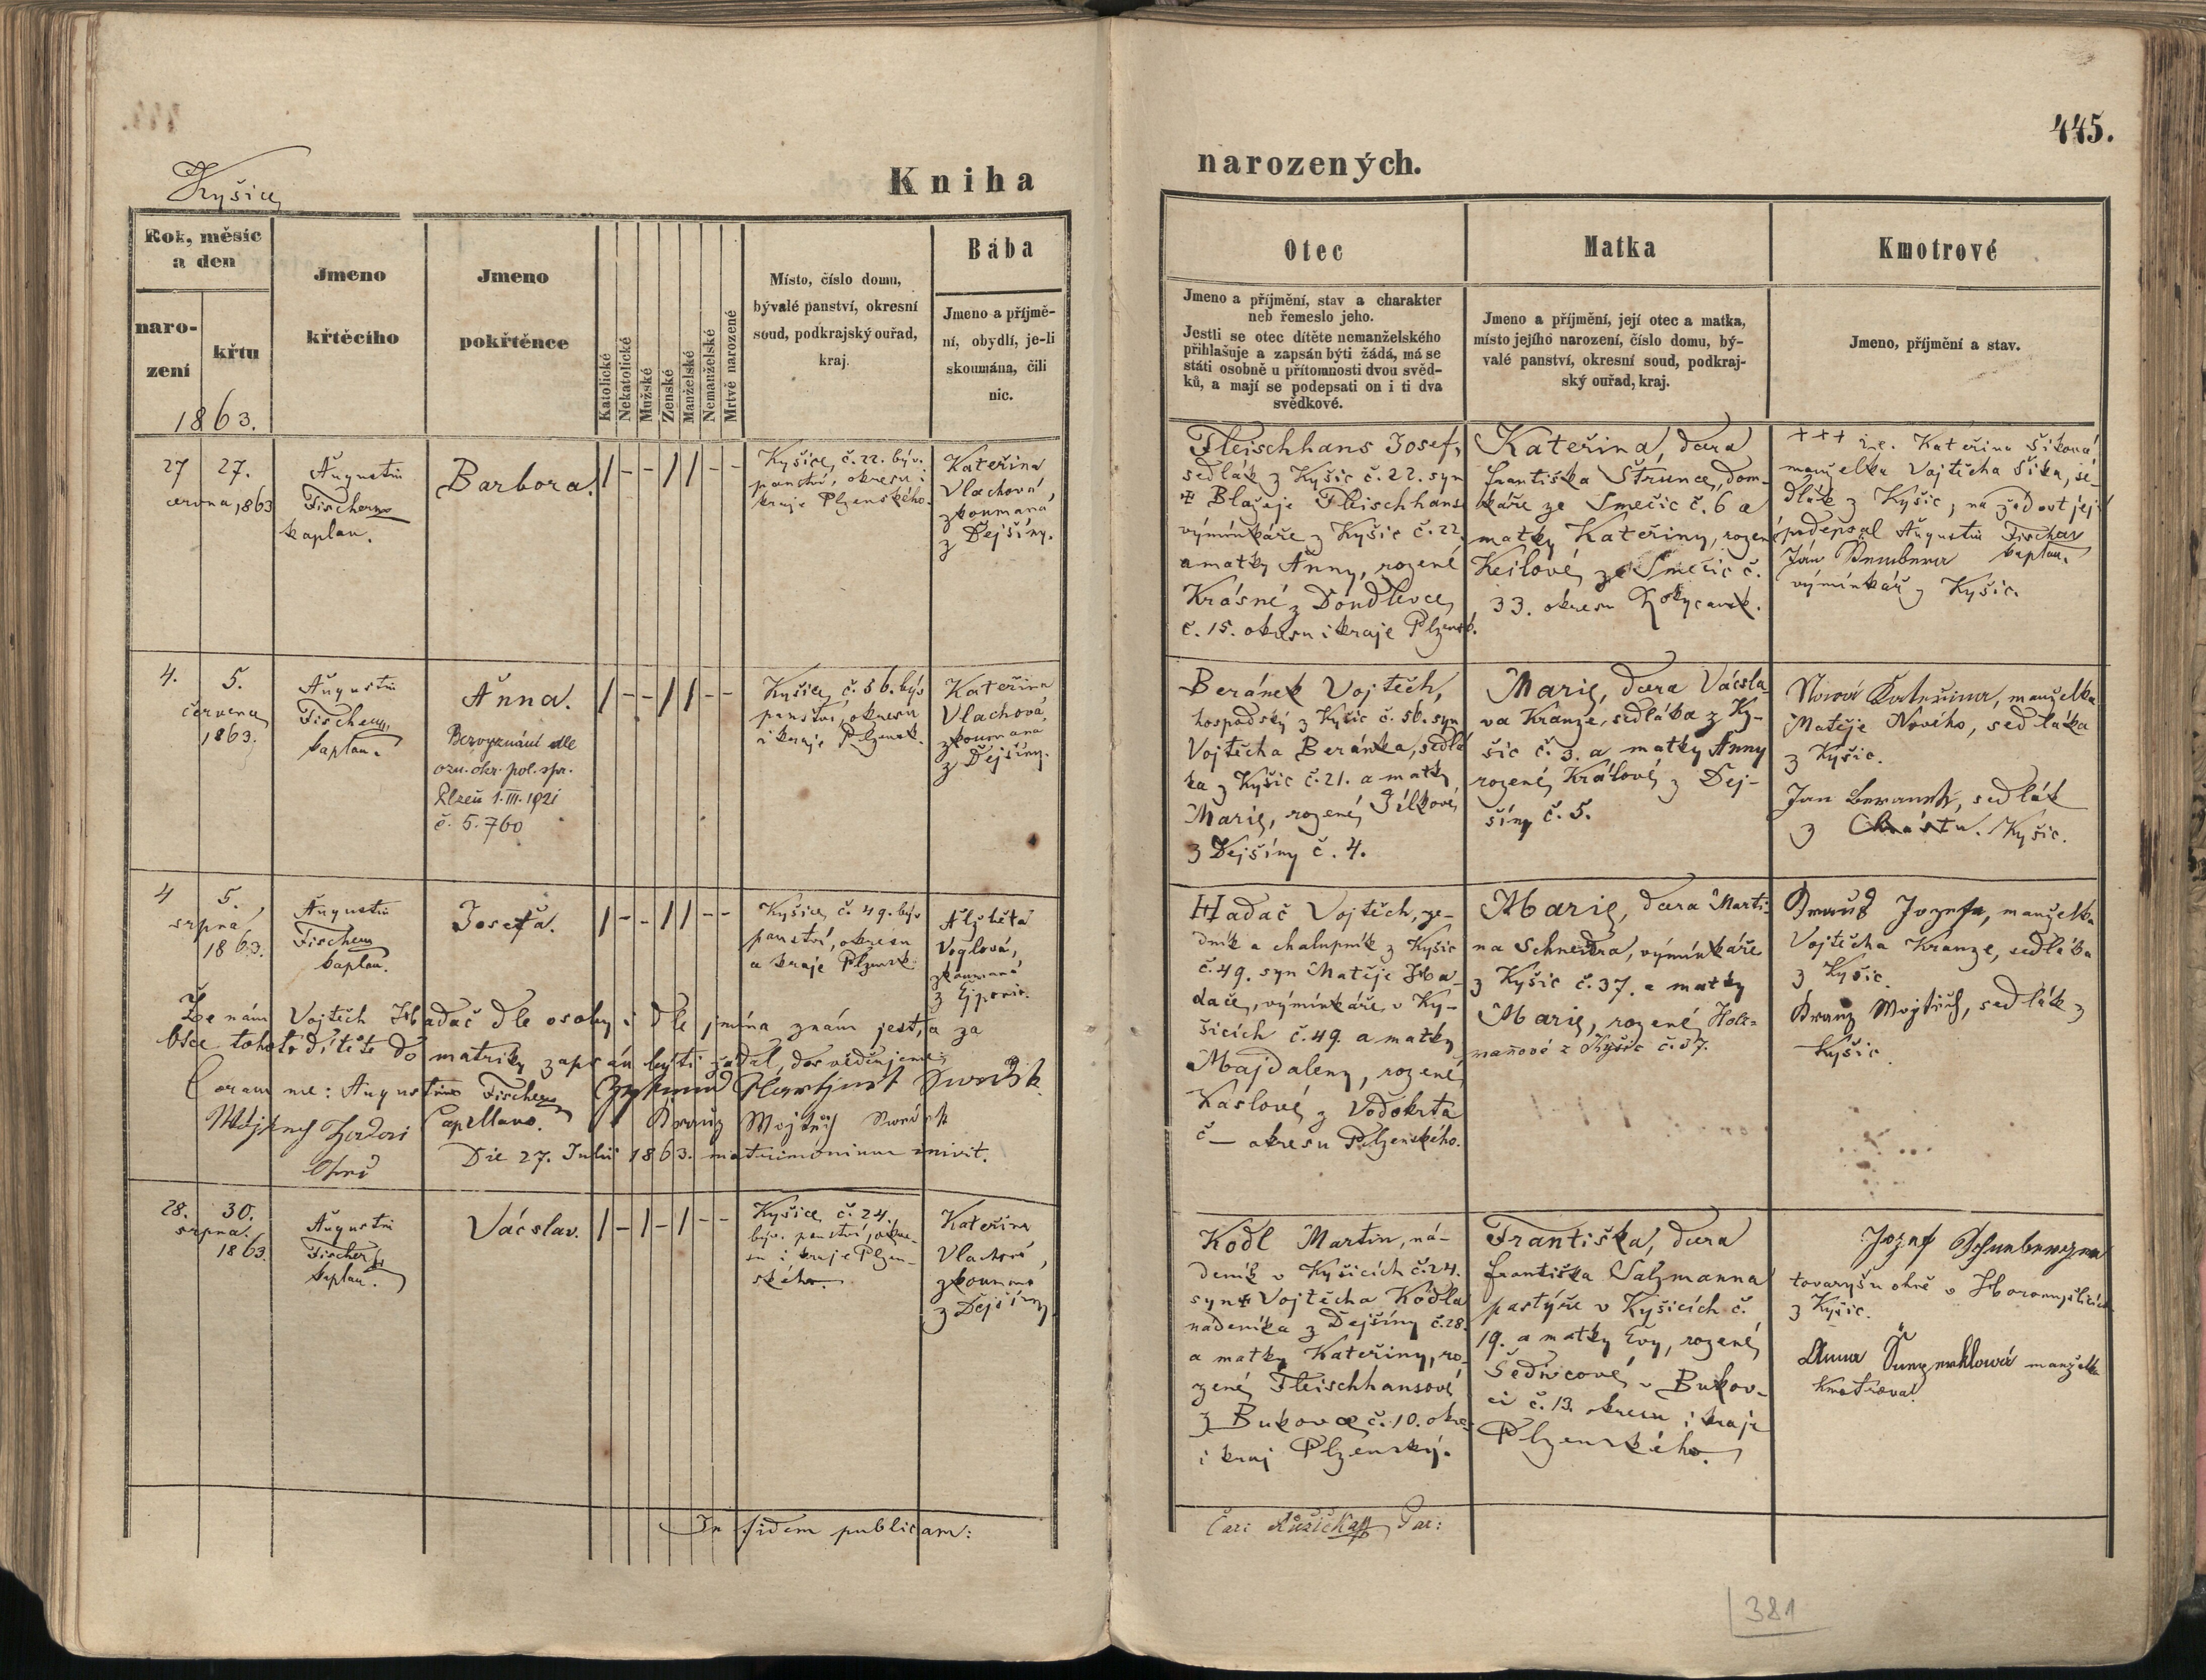 445.
Kyšice
Kniha
narozených.
Rok, měsíc
a den
naro-
zení
křtu
1863.
Jmeno
křtěcího
Jmeno
pokřtěnce
Katolické
Nekatolické
Mužské
Ženské
Manželské
Nemanželské
Mrtvě narozené
Místo, číslo domu,
bývalé panství, okresní
soud, podkrajský ouřad,
kraj.
Bába
Jmeno a příjmě-
ní, obydlí, je-li
skoumána, čili
nic.
Otec
Jmeno a příjmění, stav a charakter
neb řemeslo jeho.
Jestli se otec dítěte nemanželského
přihlašuje a zapsán býti žádá, má se
státi osobně u přítomnosti dvou svěd-
ků, a mají se podepsati on i ti dva
svědkové.
Matka
Jmeno a příjmění, její otec a matka,
místo jejího narození, číslo domu, bý-
valé panství, okresní soud, podkraj-
ský ouřad, kraj.
Kmotrové
Jmeno, příjmění a stav.
27 27.
června, 1863
Augustin
Fischer
kaplan.
Barbora.
/ - - / / - -
Kyšice, č. 22. býv.
panství, okresu i
kraje Plzenského.
Kateřina
Vlachová,
zkoumaná
z Dejšíny.
Fleischhans Josef,
sedlák z Kyšic č. 22. syn
✠ Blažeje Fleischhans
výminkáře z Kyšic č. 22.
a matky Anny, rozené
Krásné z Doudlevce
č. 15. okresu i kraje Plzensk.
Kateřina, dcera
Františka Štrunce, dom-
káře ze Smečic č. 6 a
matky Kateřiny, rozen
Keilové ze Smečic č.
33. okresu Rokycansk.
+++ i.e. Kateřina Šiková
manželka Vojtěcha Šika, se-
dlák z Kyšic, na žádost její
podepsal Augustin Fischer
kaplan.
Ján Bembera
výminkář z Kyšic.
4. 5.
července
1863.
Augustin
Fischer,
kaplan.
Anna.
Bezvyznání dle
ozn. okr. pol. spr.
Plzeň 1.III.1921
č. 5.760
/ - - / / - -
Kyšice, č. 56. býv
panství, okresu
i kraje Plzensk.
Kateřina
Vlachová,
zkoumaná
z Dejšíny.
Beránek Vojtěch,
hospodský z Kyšic č. 56. syn
Vojtěcha Beránka, sedlá
ka z Kyšic č. 21. a matky
Marie, rozené Jílkové
z Dejšíny č. 4.
Marie, dcera Václa-
va Kranze, sedláka z Ky-
šic č. 3. a matky Anny
rozené Králové z Dej-
šíny č. 5.
Nová Kateřina, manželka
Matěje Nového, sedláka
z Kyšic.
Jan Beranek, sedlák
z Chrástu. Kyšic.
4 5.
srpna
1863.
Augustin
Fischer
kaplan.
Josefa.
/ - - / / - -
Kyšice č. 49. býv
panství, okresu
a kraje Plzensk.
Alžběta
Voglová,
zkoumaná
z Ejpovic.
Že nám Vojtěch Hadač dle osoby i dle jména znám jest, a za
otce tohoto dítěte do matriky zapsán býti žádal, dosvědčujeme:
Coram me: Augustino Fischer
Capellano.
Kranz Wojtěch
Die 27. Julii 1863. matrimonium inivit.
Hadač Vojtěch, ze-
dník a chalupník z Kyšic
č. 49. syn Matěje Ha-
dače, výminkáře v Ky-
šicích č. 49. a matky
Majdaleny, rozené
Kaslové z Vodokrta
č — okresu Plzenského.
Marie, dcera Marti-
na Schneidra, výminkáře
z Kyšic č. 37. a matky
Marie, rozené Holz-
manové z Kyšic č. 37.
Kranz Jozefa, manželka
Vojtěcha Kranze, sedláka
z Kyšic.
Kranz Wojtěch, sedlák z
Kyšic.
28. 30.
srpna.
1863
Augustin
Fischer
kaplan.
Václav.
/ - / - / - -
Kyšice, č. 24.
býv. panství, okre-
su i kraje Plzen-
ského.
Kateřina
Vlachová,
zkoumaná
z Dejšíny
Ködl Martin, ná-
deník v Kyšicích č. 24.
syn ✠ Vojtěcha Ködla
nádeníka z Dejšíny č. 28.
a matky Kateřiny, ro-
zené Fleischhansové
z Bukovce č. 10. okre-
i kraj Plzenský.
Františka, dcera
Františka Salzmanna
pastýře v Kyšicích č.
19. a matky Evy, rozené
Šedivcové v Bukov-
ci č. 13. okresu i kraje
Plzenského.
Jozef
z Kyšic.
Anna manželka
Kmotrova.
In fidem publicam:
Car: Růžička Par:
381